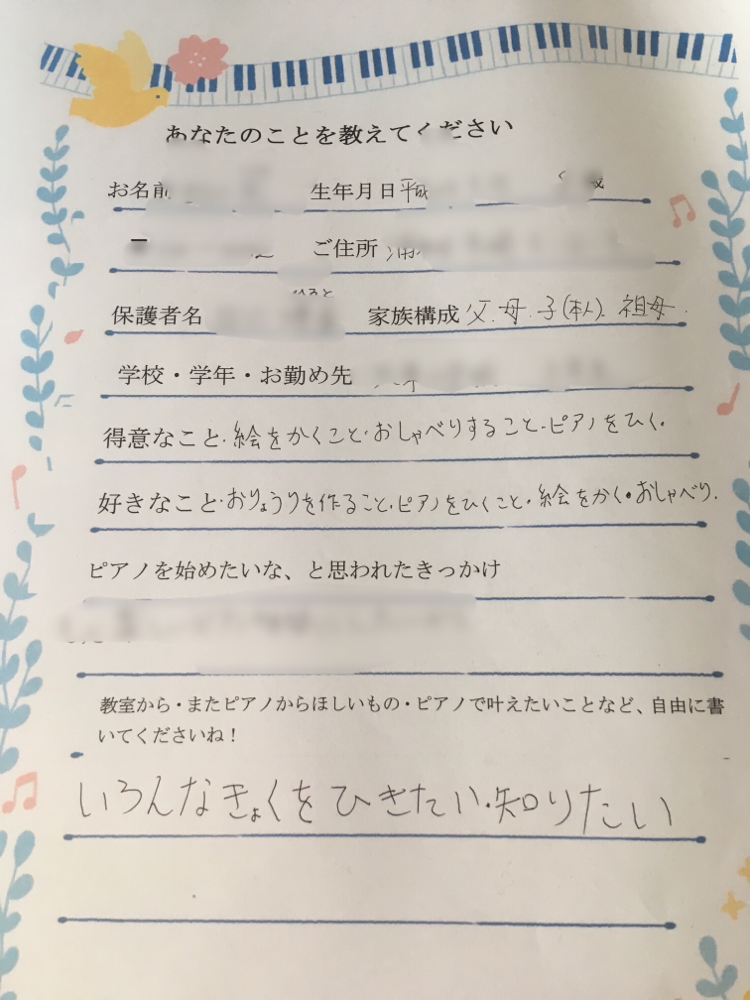 あなたのことを教えてください
お名前 生年月日 平成
ご住所
保護者名 家族構成 父.母.子(本人).祖母.
学校・学年・お勤め先
得意なこと・絵をかくこと・おしゃべりすること・ピアノをひく・
好きなこと・おりょうりを作ること・ピアノをひくこと・絵をかく・おしゃべり.
ピアノを始めたいな、と思われたきっかけ
教室から・またピアノからほしいもの・ピアノで叶えたいことなど、自由に書
いてくださいね！
いろんなきょくをひきたい・知りたい